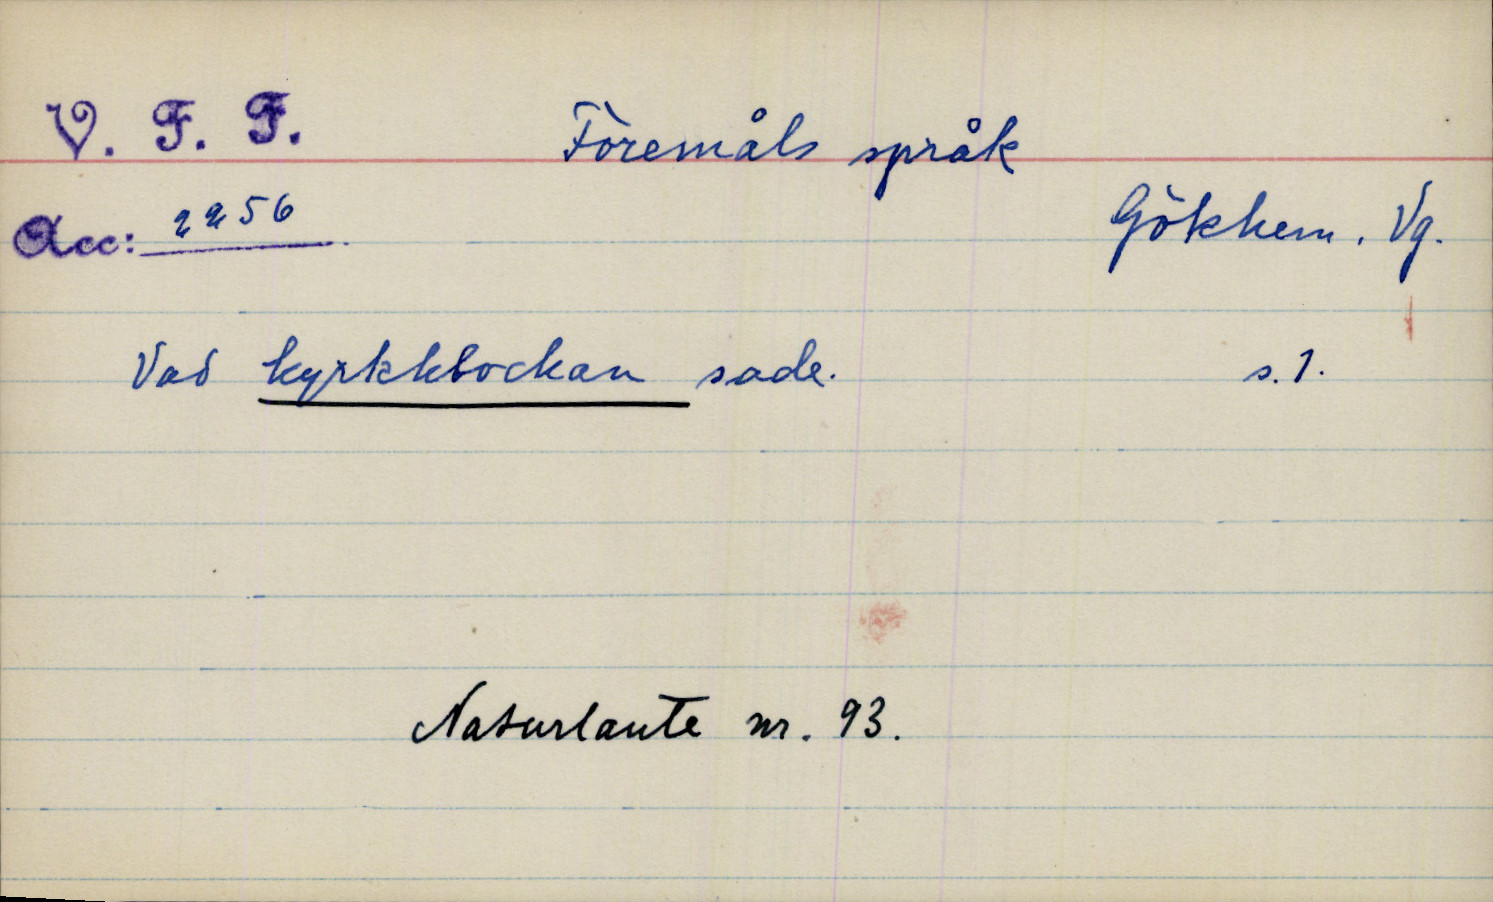 V. F. F.
Föremåls språk
Acc: 2256
Gökhem. Vg.
Vad kyrkklockan sade. s. 1.
Naturlaute nr. 93.